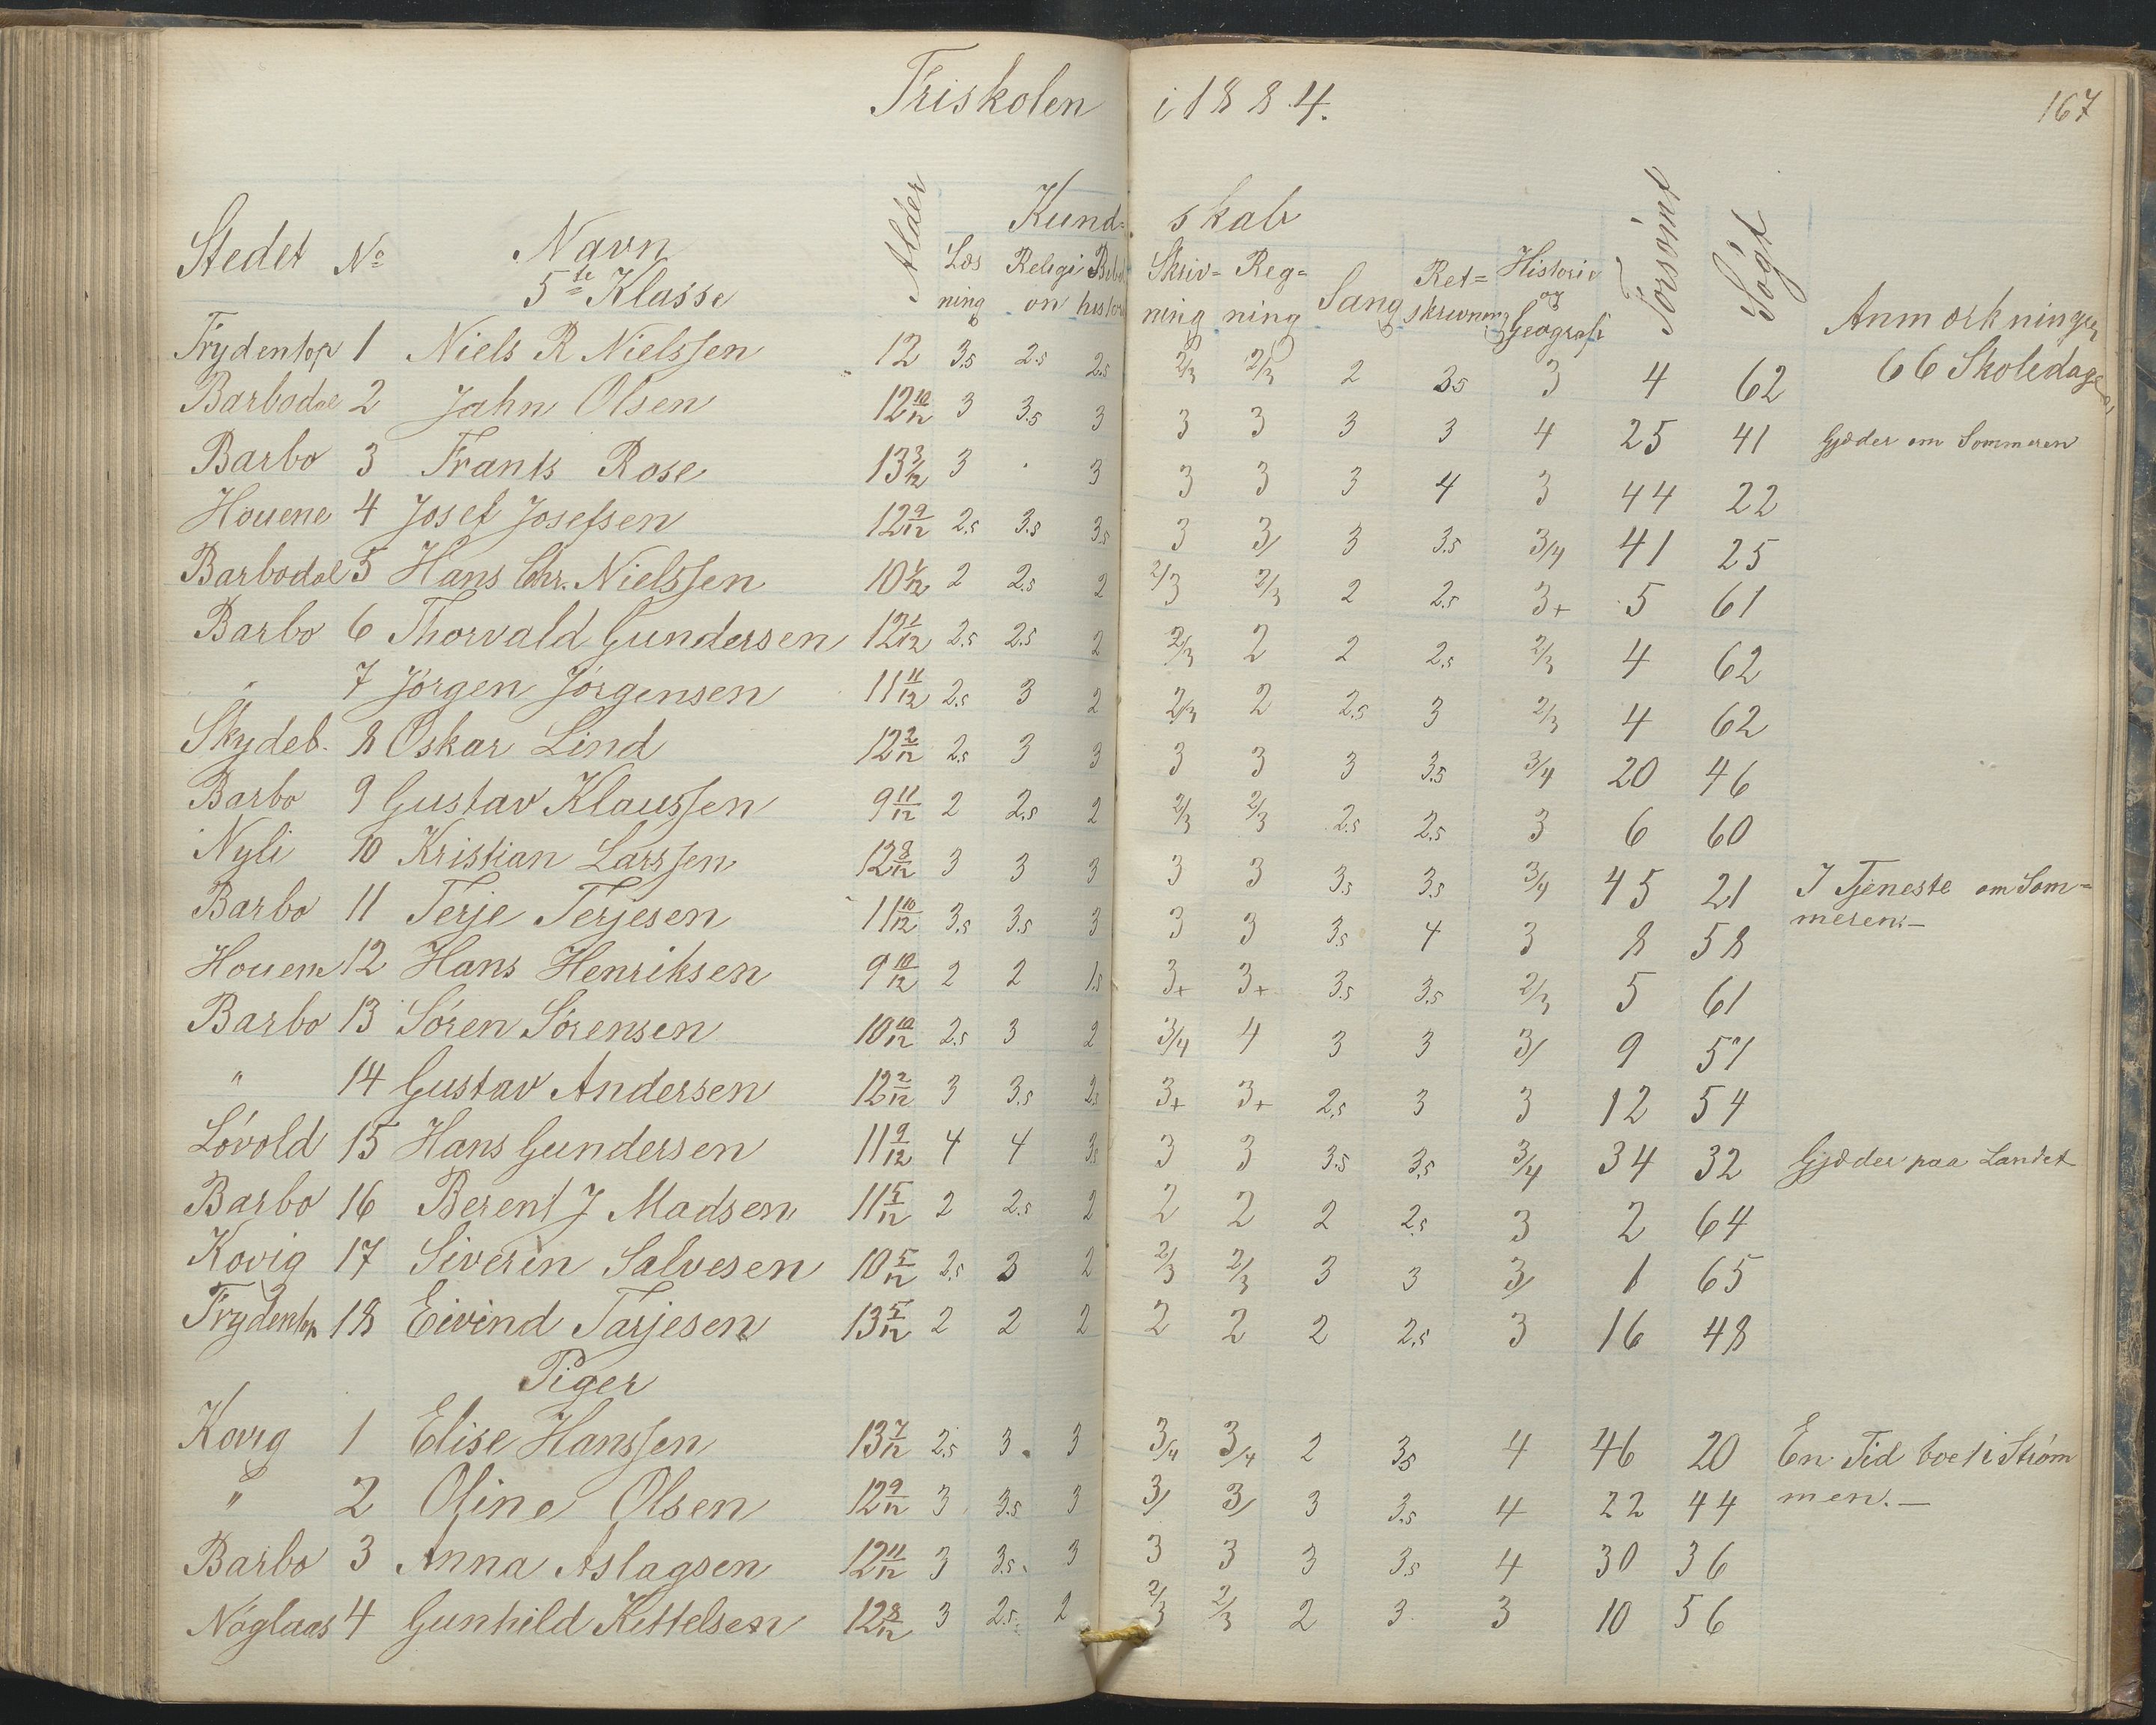 Friskolen i 1884.
167
Stedet No Navn Alder Kundskab Forsømt Søgt Anmærkninger
5te Klasse Læsning Religion Bibelhistorie Skrivning Regning Sang Retskrivning Historie og Geografi
66 Skoledage
Frydentop 1 Niels R Nielssen 12 3.5 2.5 2.5 2/3 2/3 2 3.5 3 4 62
Barbodal 2 Jahn Olsen 12 10/12 3 3.5 3 3 3 3 3 4 25 41 Gjæder om Sommeren
Barbo 3 Frants Rose 13 3/12 3 . 3 3 3 3 4 3 44 22
Houene 4 Josef Josefsen 12 9/12 2.5 3.5 3.5 3 3/ 3 3.5 3/4 41 25
Barbodal 5 Hans Chr. Nielssen 10 /12 2 2.5 2 2/3 2/3 2 2.5 3+ 5 61
Barbo 6 Thorvald Gundersen 12 1/12 2.5 2.5 2 2/3 2 2 2.5 2/3 4 62
" 7 Jørgen Jørgensen 11 11/12 2.5 3 2 2/3 2 2.5 3 2/3 4 62
Skydeb. 8 Oskar Lind 12 2/12 2.5 3 3 3 3 3 3.5 3/4 20 46
Barbo 9 Gustav Klaussen 9 11/12 2 2.5 2 2/3 2/3 2.5 2.5 3 6 60
Nyli 10 Kristian Larssen 12 8/12 3 3 3 3 3 3.5 3.5 3/4 45 21 I Tjeneste om Som=
Barbo 11 Terje Terjesen 11 10/12 3.5 3.5 3 3 3 3.5 4 3 8 58 meren.—
Houene 12 Hans Henriksen 9 10/12 2 2 1.5 3+ 3+ 3.5 3.5 2/3 5 61
Barbo 13 Søren Sørensen 10 10/12 2.5 3 2 3/4 4 3 3 3/ 9 57
" 14 Gustav Andersen 12 2/12 3 3.5 2.5 3+ 3+ 2.5 3 3 12 54
Løvold 15 Hans Gundersen 11 9/12 4 4 3.5 3 3 3.5 3.5 3/4 34 32 Gjæder paa Landet
Barbo 16 Berent J Madsen 11 5/12 2 2.5 2 2 2 2 2.5 3 2 64
Kovig 17 Siverin Salvesen 10 5/12 2.5 3 2 2/3 2/3 3 3 3/ 1 65
Frydentop 18 Eivind Tarjesen 13 5/12 2 2 2 2 2 2 2.5 3 16 48
Piger
Kovig 1 Elise Hanssen 13 7/12 2.5 3. 3 3/4 3/4 2 3.5 4 46 20 En Tid boet i Strøm
" 2 Oline Olsen 12 9/12 3 3.5 3 3/ 3/ 3 3.5 4 22 44 men.—
Barbo 3 Anna Aslagsen 12 11/12 3 3.5 3 3 3 3 3.5 4 30 36
Nøglaas 4 Gunhild Kittelsen 12 8/12 3 2.5 2 2/3 2/3 2 3 3 10 56